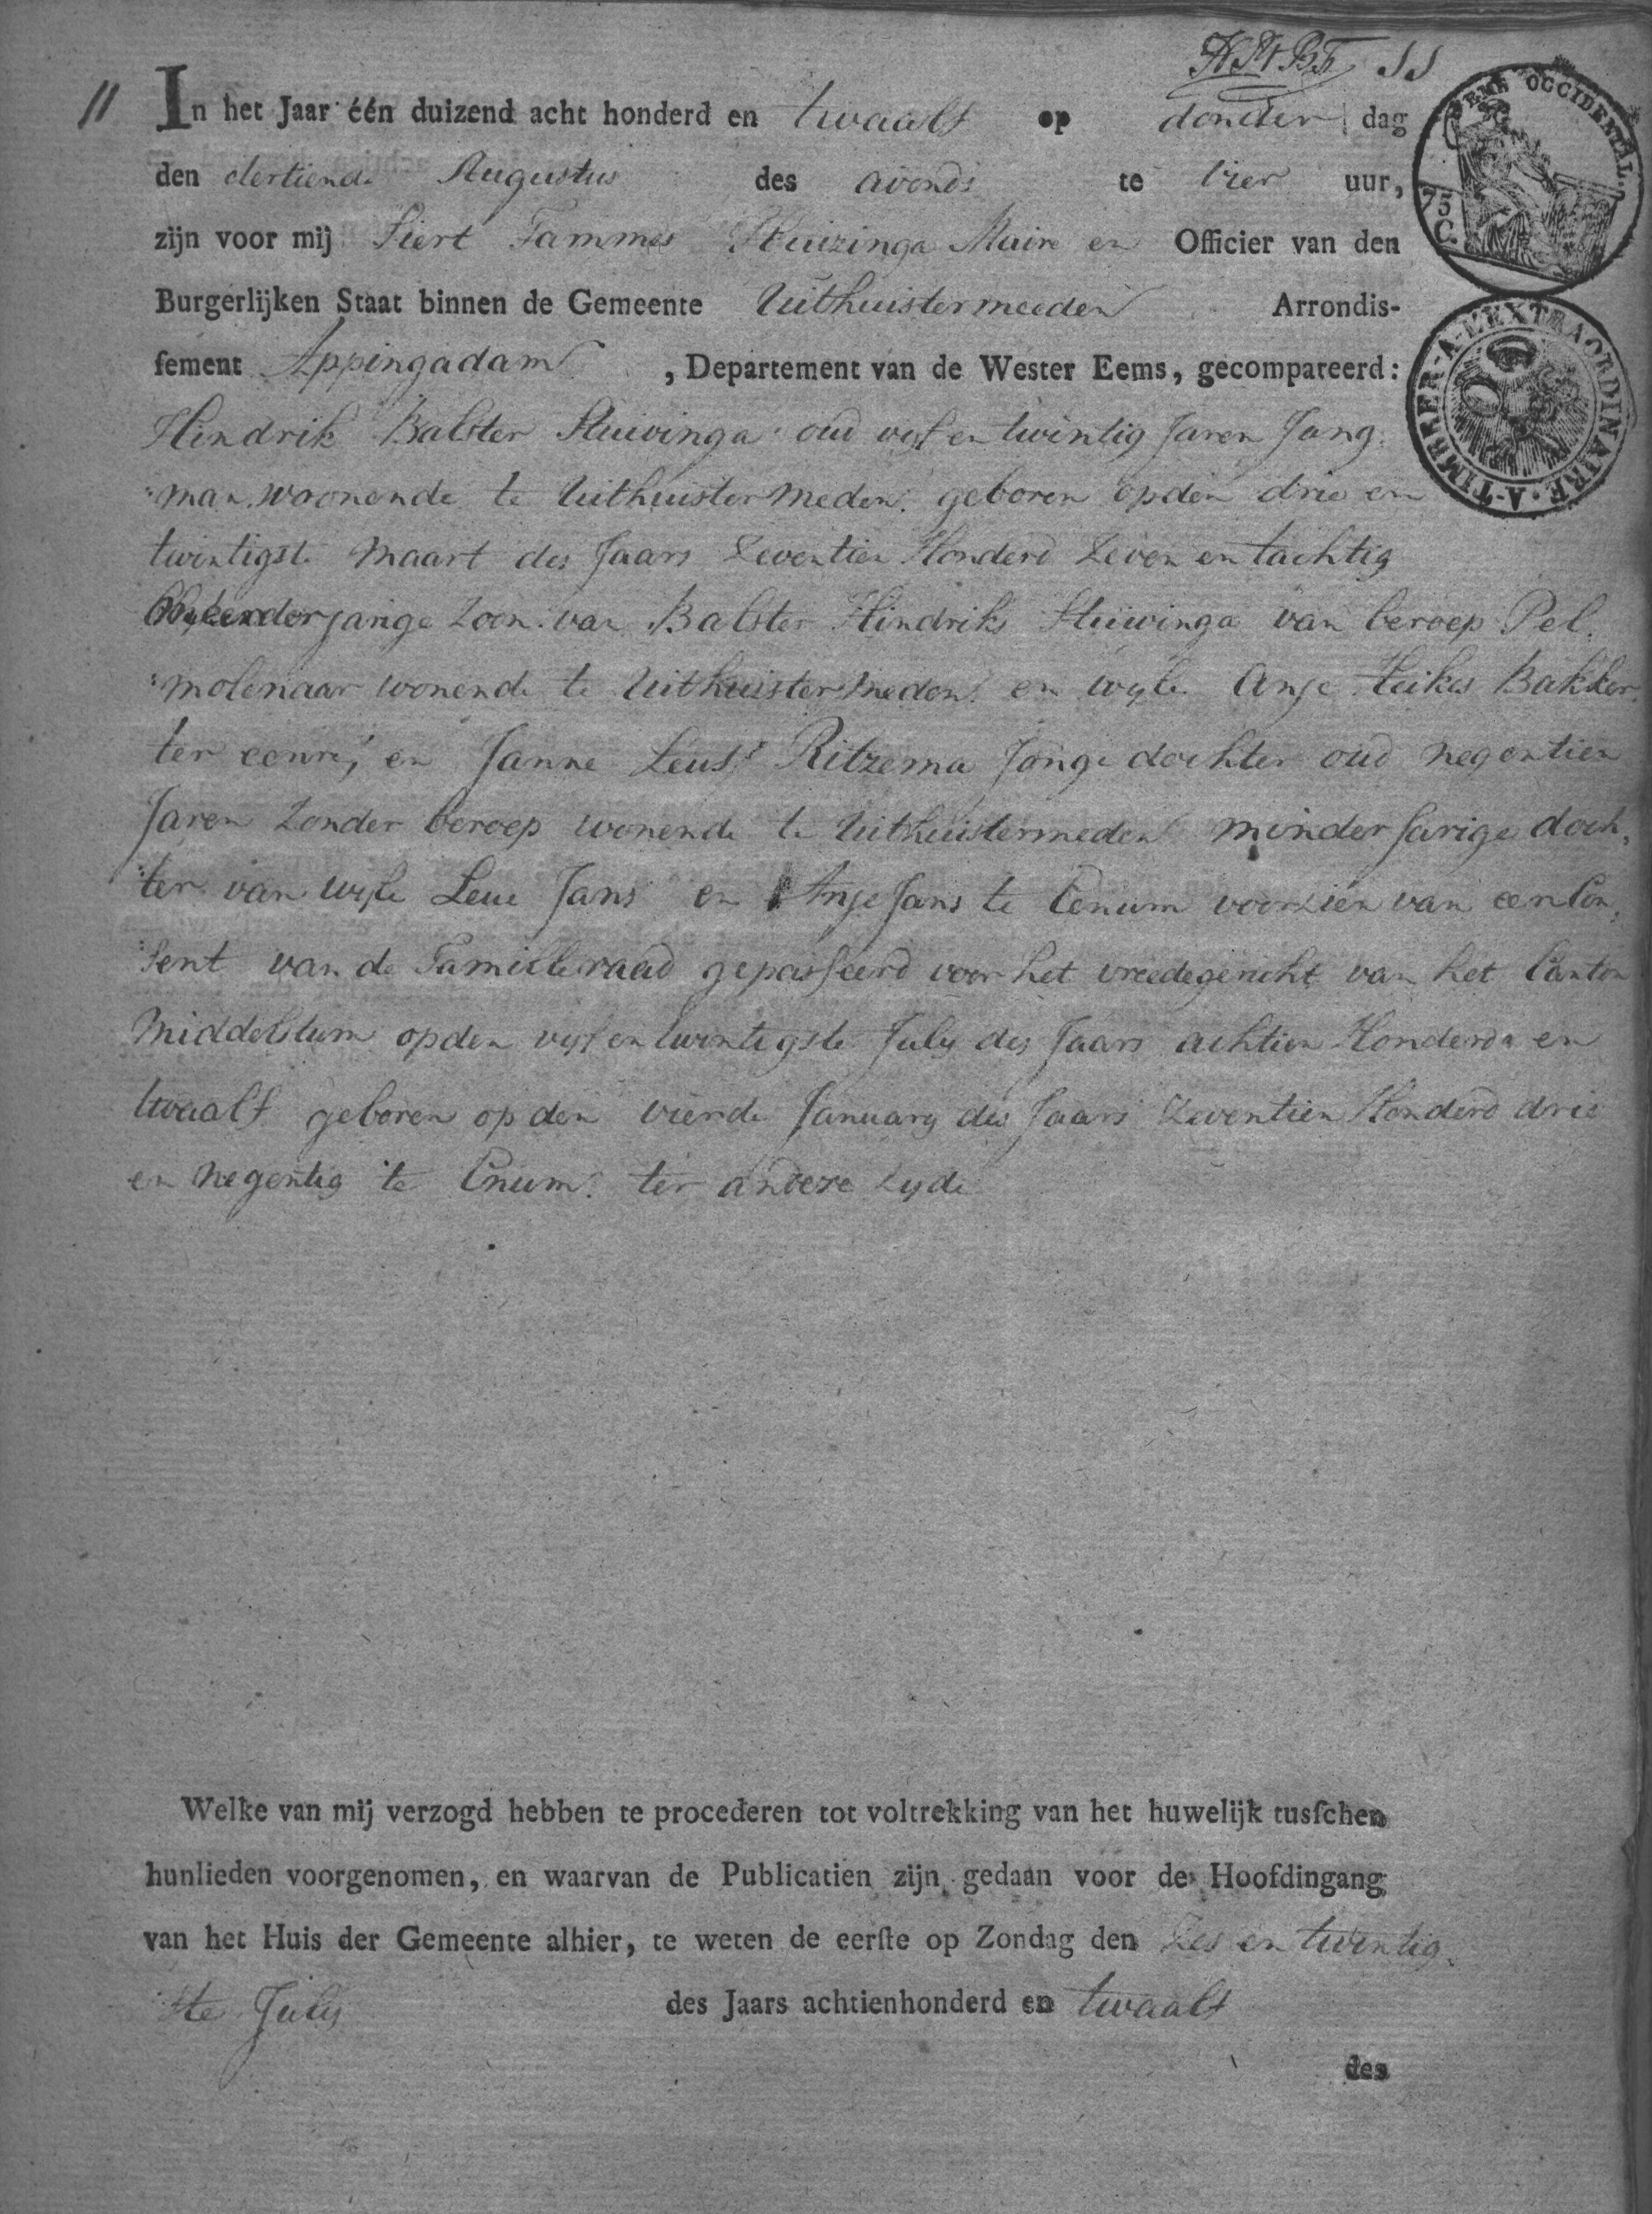 11
In het Jaar één duizend acht honderd en twaalf op donder dag
den dertiende Augustus des avonds te vier uur,
zijn voor mij Siert Tammes Huizinga Maire en Officier van den
Burgerlijken Staat binnen de Gemeente Uithuistermeeden Arrondis-
sement Appingadam, Departement van de Wester Eems, gecompareerd:
Hindrik Balster Stuivinga oud vyf en twintig Jaren Jong
man woonende te Uithuistermeden geboren op den drie en
twintigste Maart des Jaars Zeventien Honderd Zeven en tachtig
jarige Zoon van Balster Hindriks Stuivinga van beroep Pel
molenaar wonende te Uithuistermeden en wyle Anje Heikes Bakker
ter eenre, en Janne Leus Ritzema Jonge dochter oud negentien
Jaren Zonder beroep wonende te Uithuistermeden minderjarige doch,
ter van wyle Leue Jans en Anje Jans te Eenum voorzien van een Con,
sent van de Familieraad gepasseerd voor het vreedegericht van het Canton
Middelstum op den vyf en twintigste July des Jaars achtien Honderd en
twaalf geboren op den vierde January des Jaars Zeventien Honderd drie
en negentig te Enum ter andere zyde
Welke van mij verzogd hebben te procederen tot voltrekking van het huwelijk tusschen
hunlieden voorgenomen, en waarvan de Publicatien zijn gedaan voor de Hoofdingang
van het Huis der Gemeente alhier, te weten de eerste op Zondag den Zes en twintig
ste July des Jaars achtienhonderd en twaalf
des
EMS OCCIDENTAL.
75
C.
A-TIMBRER-A-L'EXTRAORDINAIRE